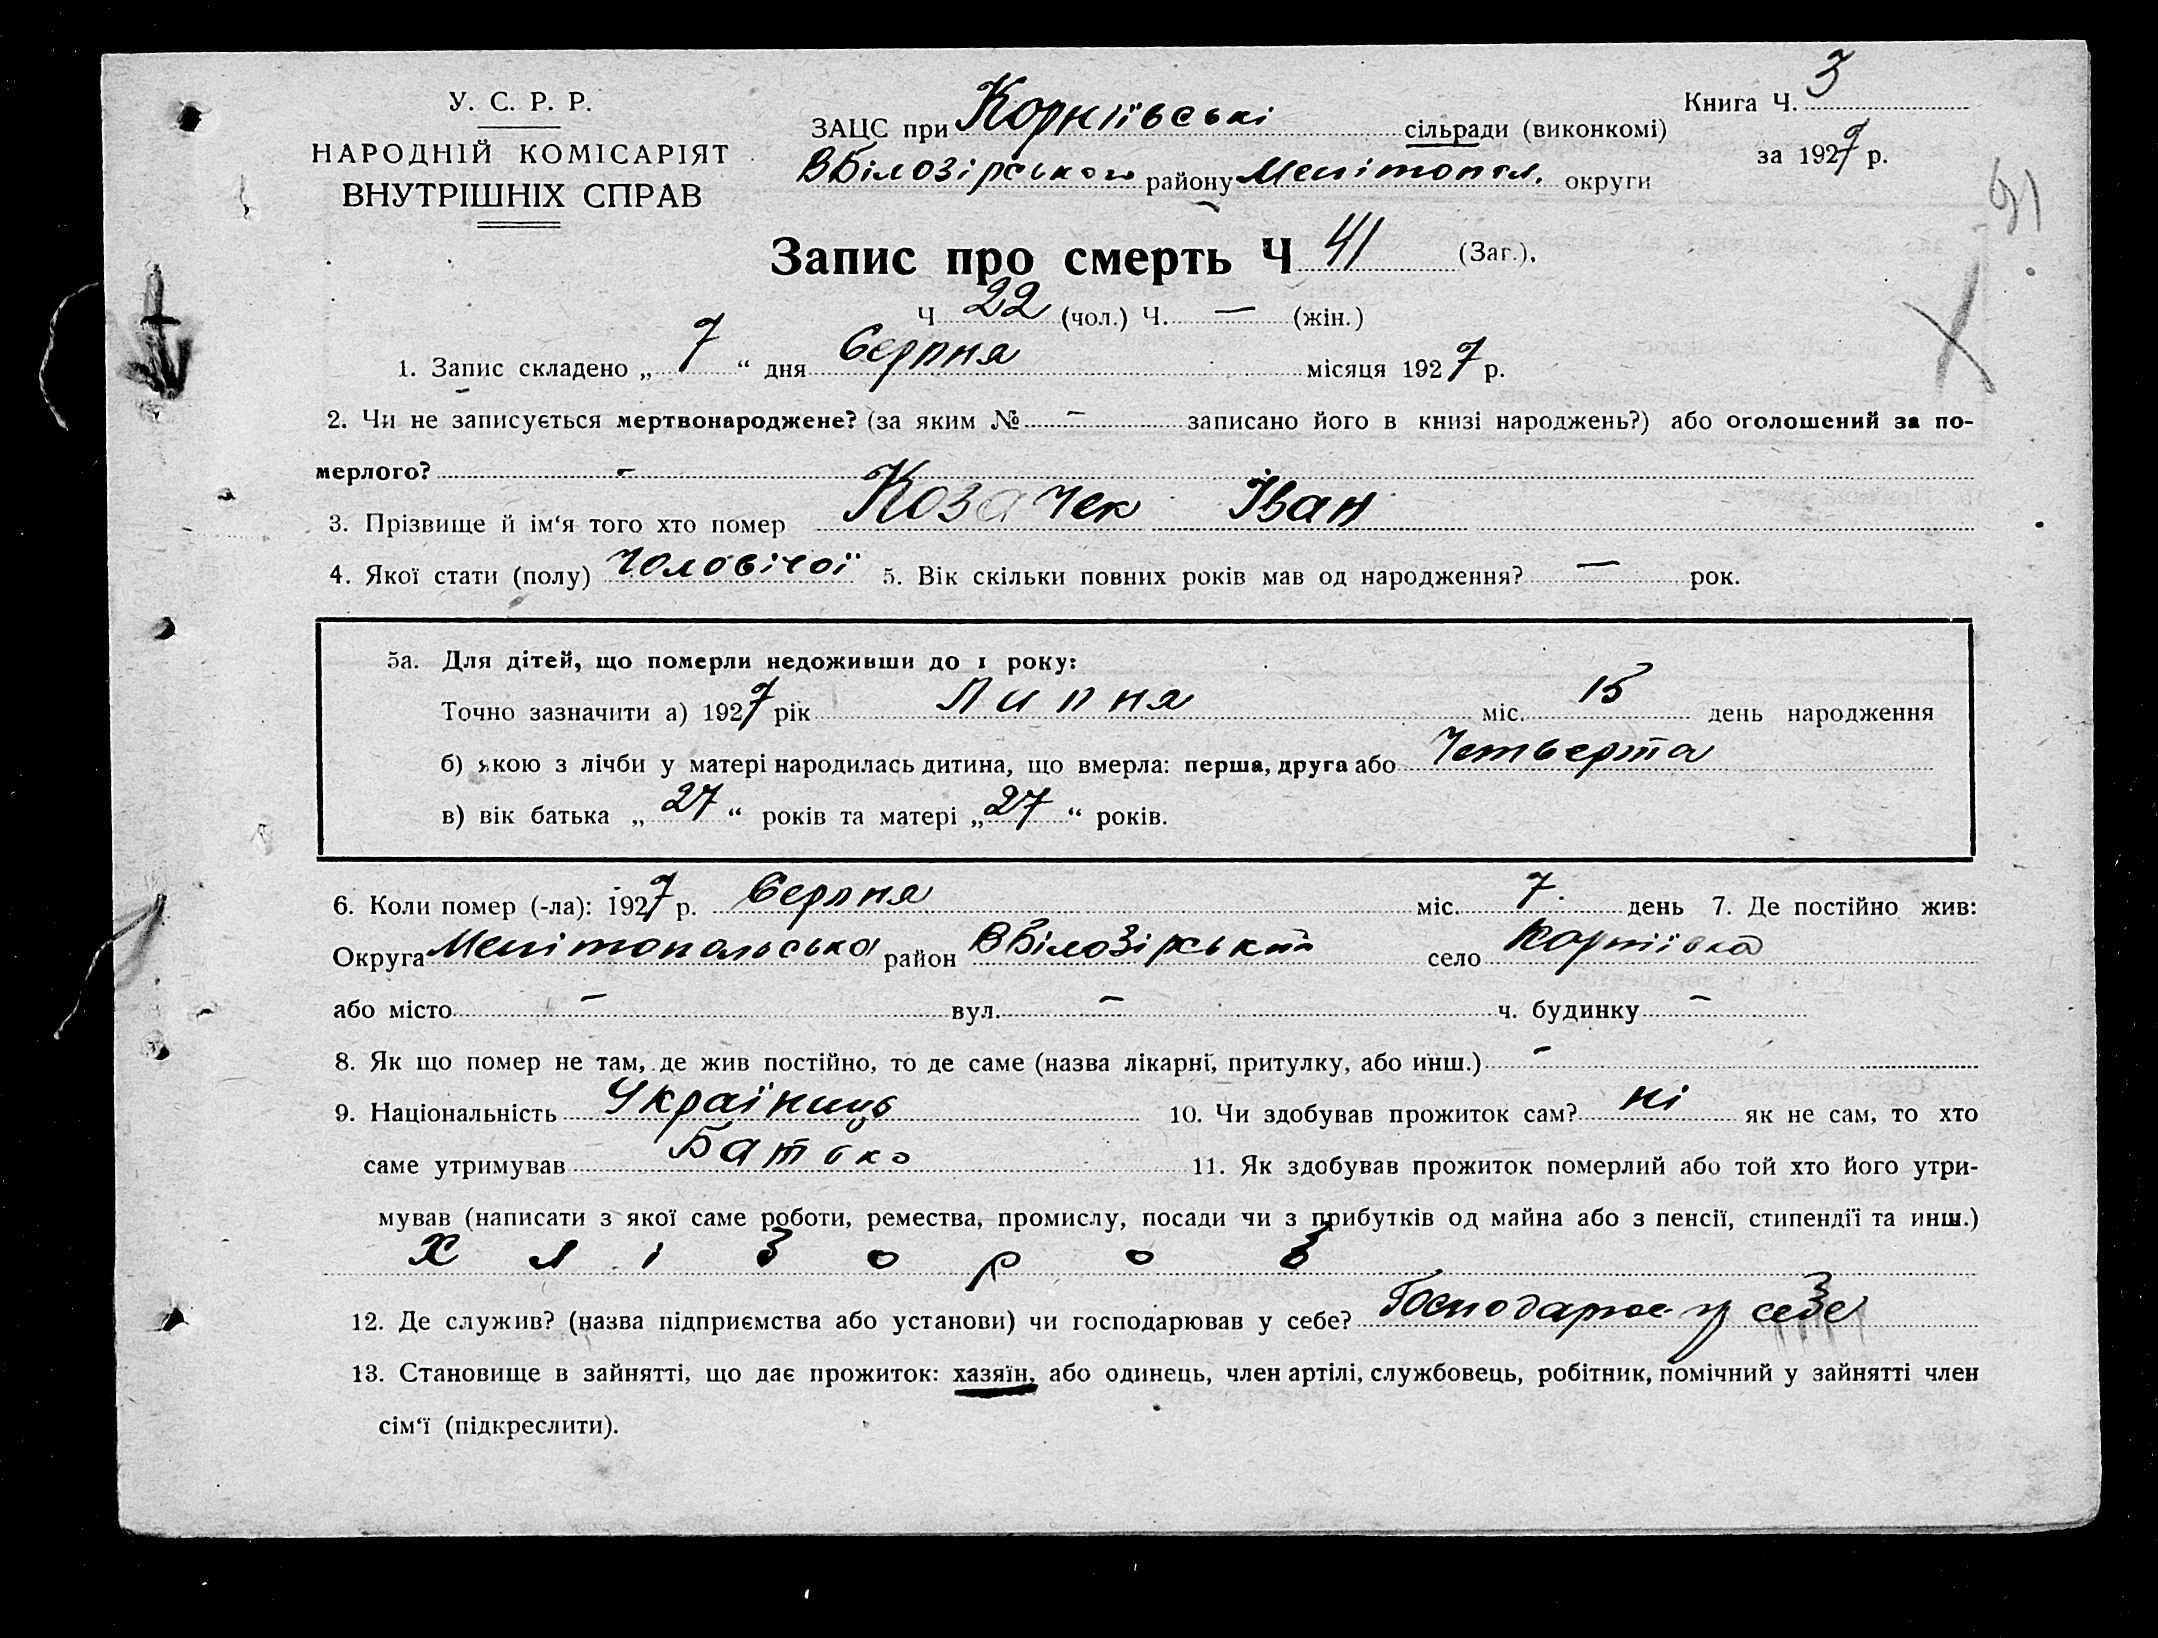 У. С. Р. Р.
НАРОДНІЙ КОМІСАРІЯТ
ВНУТРІШНІХ СПРАВ
ЗАЦС при Корніївські сільради (виконкомі)
ВБілозірського району Мелітопол. округи
Книга Ч. 3
за 1927 р.
91
Запис про смерть Ч 41 (Заг.).
Ч 22 (чол.) Ч. — (жін.)
1. Запис складено „ 7 “ дня Серпня місяця 1927 р.
2. Чи не записується мертвонароджене? (за яким № — записано його в книзі народжень?) або оголошений за по-
мерлого? -
3. Прізвище й ім‘я того хто помер Козачек Іван
4. Якої стати (полу) Чоловічої 5. Вік скільки повних років мав од народження? — рок.
5а. Для дітей, що померли недоживши до 1 року:
Точно зазначити а) 1927 рік Липня міс. 15 день народження
б) якою з лічби у матері народилась дитина, що вмерла: перша, друга або Четверта
в) вік батька „ 27 “ років та матері „ 27 “ років.
6. Коли помер (-ла): 1927 р. Серпня міс. 7. день 7. Де постійно жив:
Округа Мелітопольська район ВБілозірський село Корніївка
або місто — вул. — ч. будинку —
8. Як що помер не там, де жив постійно, то де саме (назва лікарні, притулку, або инш.) -
9. Національність Українець 10. Чи здобував прожиток сам? ні як не сам, то хто
саме утримував Батько 11. Як здобував прожиток померлий або той хто його утри-
мував (написати з якої саме роботи, ремества, промислу, посади чи з прибутків од майна або з пенсії, стипендії та инш.)
Х л і б о р о б
12. Де служив? (назва підприємства або установи) чи господарював у себе? Господарює у себе
13. Становище в зайнятті, що дає прожиток: хазяїн, або одинець, член артілі, службовець, робітник, помічний у зайнятті член
сім‘ї (підкреслити).